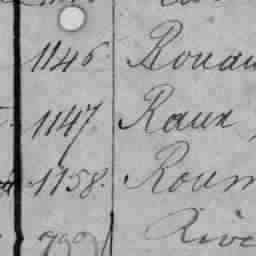 1146. Rouau
1147. Raux
1158. Roum